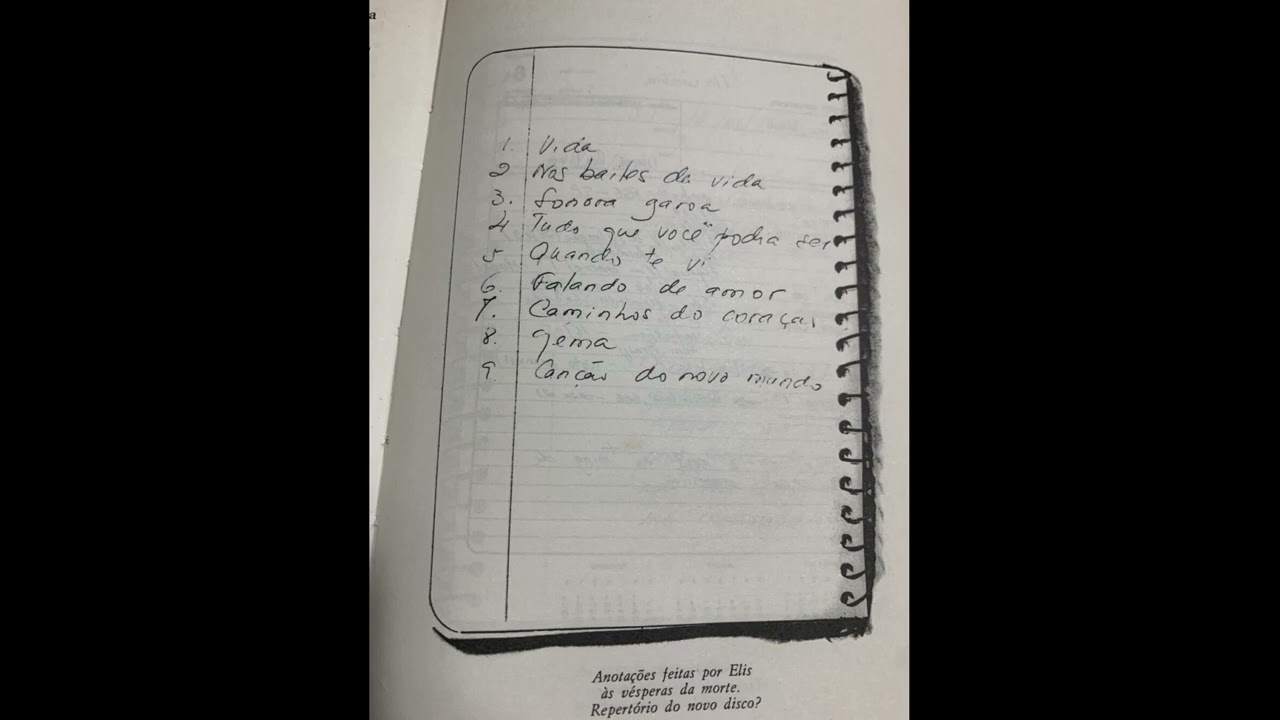 a
1. Vida
2 Nos bailes da vida
3. Sonora garoa
4 Tudo que você podia ser
5 Quando te vi
6. Falando de amor
7. Caminhos do coração
8. Gema
9. Canção do novo mundo
Anotações feitas por Elis
às vésperas da morte.
Repertório do novo disco?